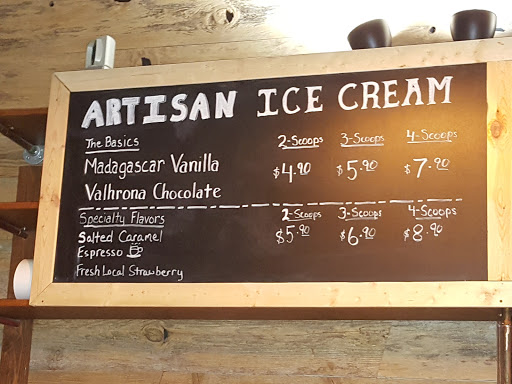 ARTISAN ICE CREAM
The Basics 2-Scoops 3-Scoops 4-Scoops
Madagascar Vanilla $4.90 $5.90 $7.90
Valhrona Chocolate
Specialty Flavors 2-Scoops 3-Scoops 4-Scoops
Salted Caramel $5.90 $6.90 $8.90
Espresso
Fresh Local Strawberry